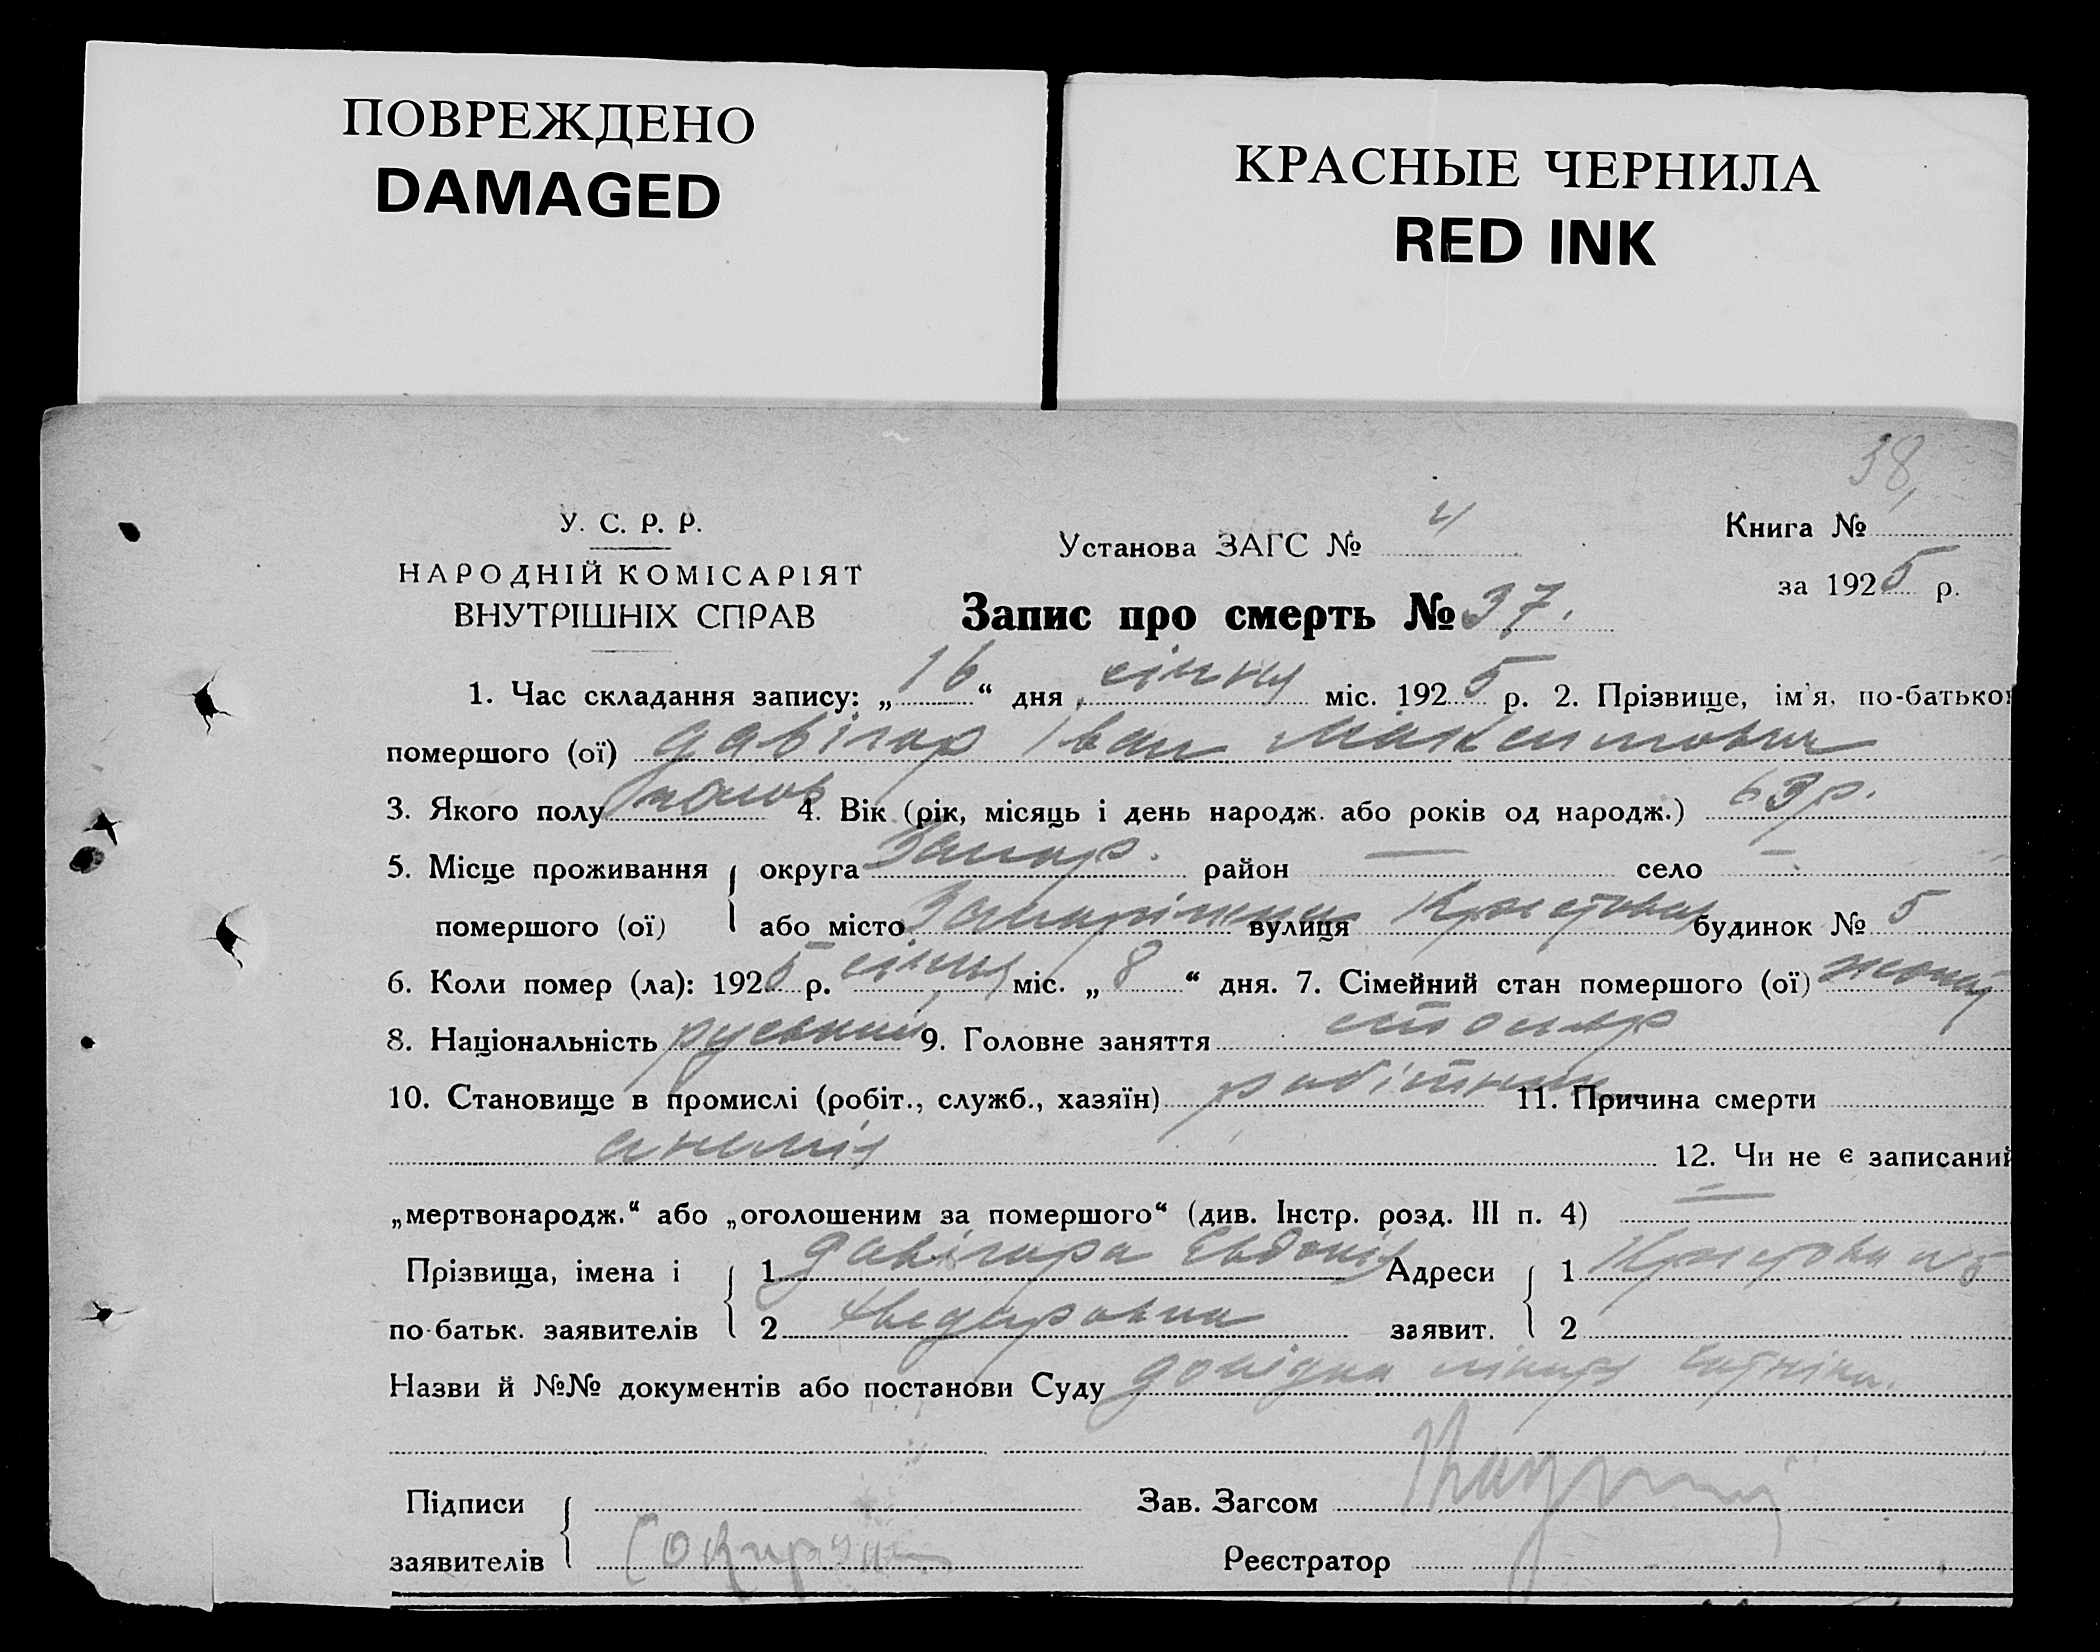 ПОВРЕЖДЕНО
DAMAGED
КРАСНЫЕ ЧЕРНИЛА
RED INK
38,
У. С. Р. Р.
НАРОДНІЙ КОМІСАРІЯТ
ВНУТРІШНІХ СПРАВ
Установа ЗАГС № 4
Книга №
за 1925 р.
Запис про смерть № 37.
1. Час складання запису: „16“ дня січня міс. 1925 р. 2. Прізвище, ім'я, по-батьков
помершого (ої) Давігор Іван Максимович
3. Якого полу 4. Вік (рік, місяць і день народж. або років од народж.) 63 р.
5. Місце проживання { округа Запор. район — село —
помершого (ої) або місто Запоріжжа вулиця будинок № 5
6. Коли помер (ла): 1925 р. січня міс. „8“ дня. 7. Сімейний стан помершого (ої)
8. Національність руський 9. Головне заняття столяр
10. Становище в промислі (робіт., служб., хазяїн) робітник 11. Причина смерти
12. Чи не є записаний
„мертвонародж.“ або „оголошеним за помершого“ (див. Інстр. розд. III п. 4) —
Прізвища, імена і { 1 Давігора Евдокія Адреси { 1 № 5
по-батьк. заявителів 2 Федоровна заявит. 2
Назви й №№ документів або постанови Суду довідка
Підписи { Зав. Загсом
заявителів Реєстратор